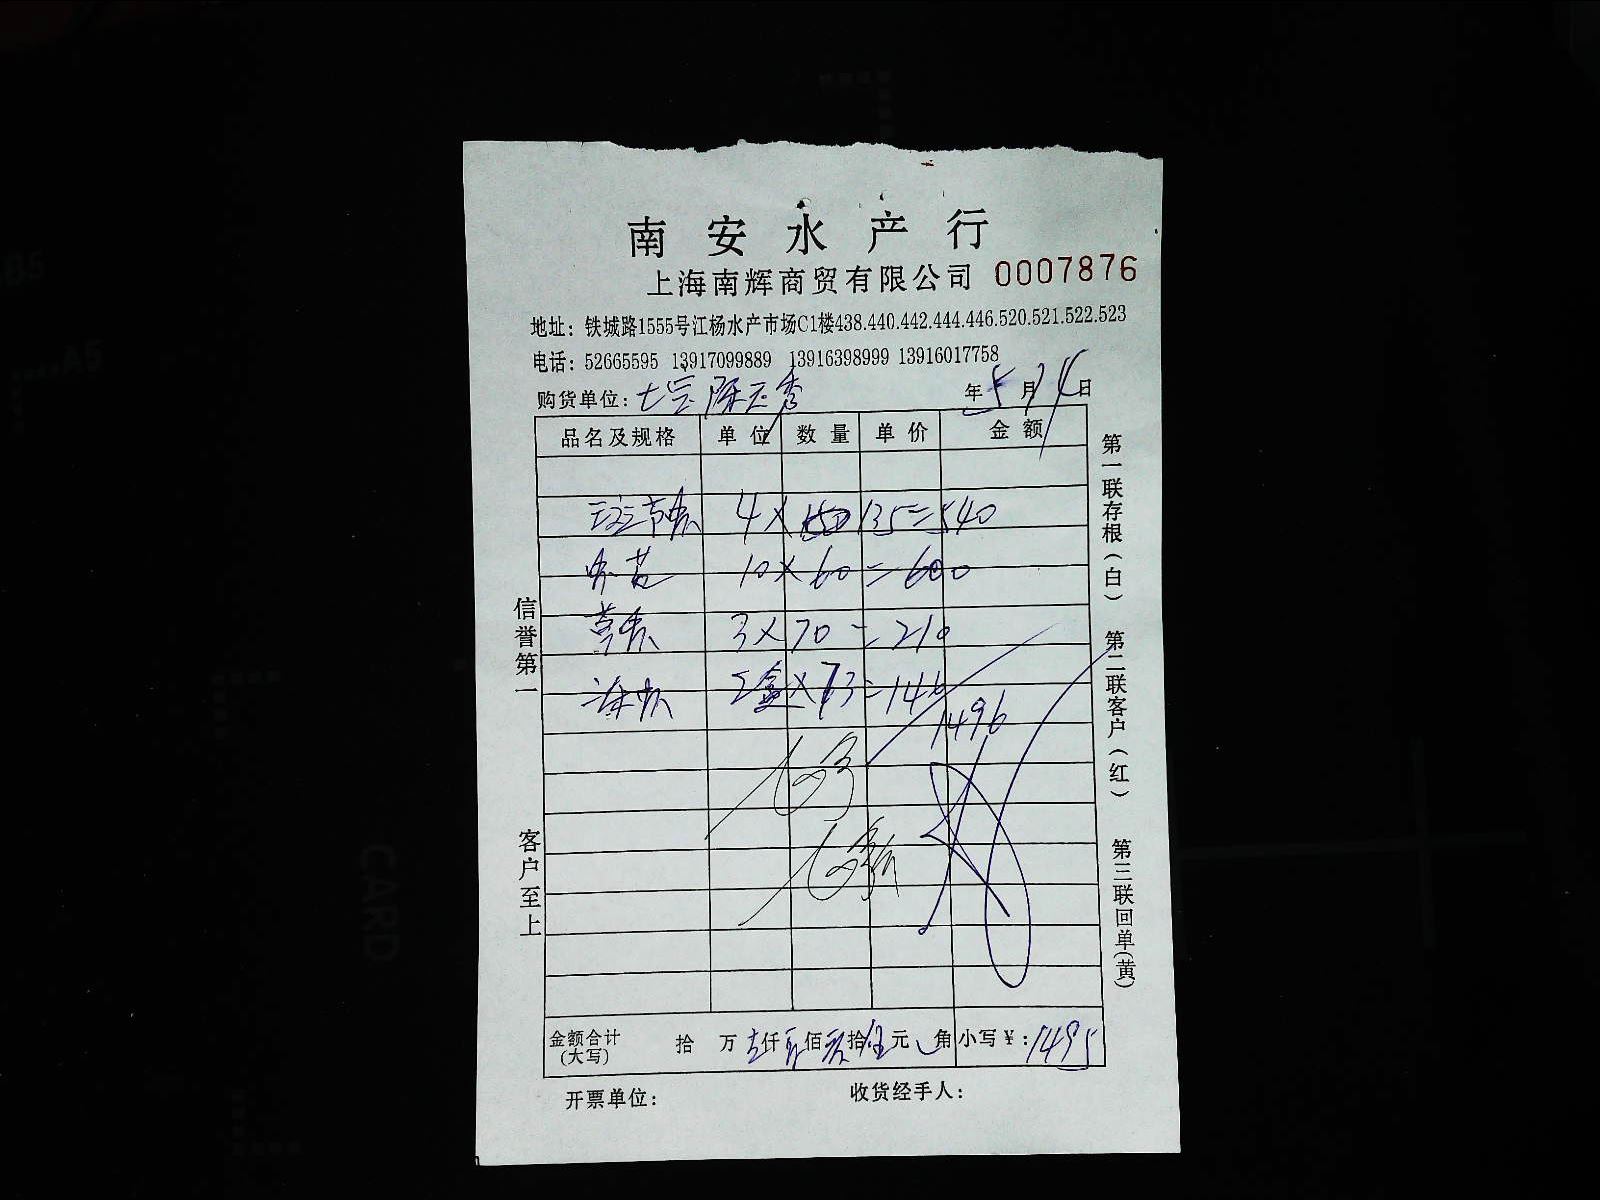 南安水产行
上海南辉商贸有限公司 0007876
地址：铁城路1555号江杨水产市场C1楼438.440.442.444.446.520.521.522.523
电话：52665595 13917099889 13916398999 13916017758
购货单位：七宝陈玉秀 年5月14日
品名及规格 单位 数量 单价 金额
斑节虾 4× 135=540
10×60=600
草虾 3×70=210
2盒×73=146
1496
金额合计(大写) 拾 万 仟 佰 拾 元 角 小写￥：1495
开票单位： 收货经手人：
信誉第一
客户至上
第一联存根(白)
第二联客户(红)
第三联回单(黄)